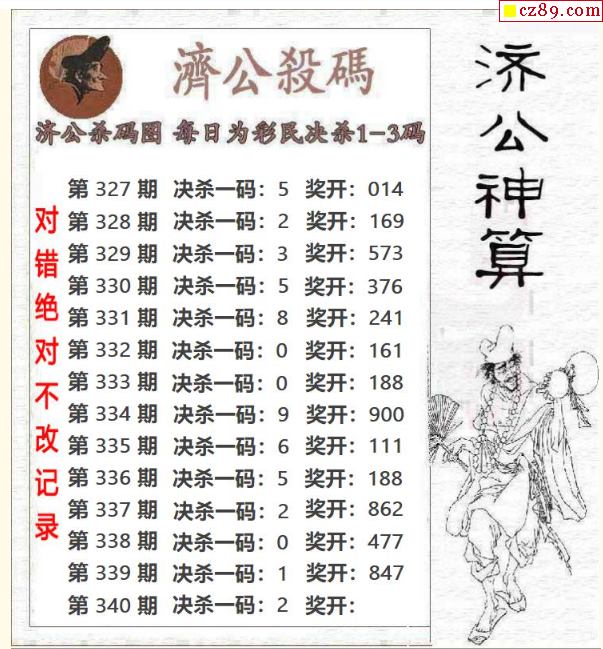 cz89.com
濟公殺碼
济公杀码图 每日为彩民决杀1-3码
第 327 期 决杀一码：5 奖开：014
第 328 期 决杀一码：2 奖开：169
第 329 期 决杀一码：3 奖开：573
第 330 期 决杀一码：5 奖开：376
第 331 期 决杀一码：8 奖开：241
第 332 期 决杀一码：0 奖开：161
第 333 期 决杀一码：0 奖开：188
第 334 期 决杀一码：9 奖开：900
第 335 期 决杀一码：6 奖开：111
第 336 期 决杀一码：5 奖开：188
第 337 期 决杀一码：2 奖开：862
第 338 期 决杀一码：0 奖开：477
第 339 期 决杀一码：1 奖开：847
第 340 期 决杀一码：2 奖开：
对错绝对不改记录
济公神算